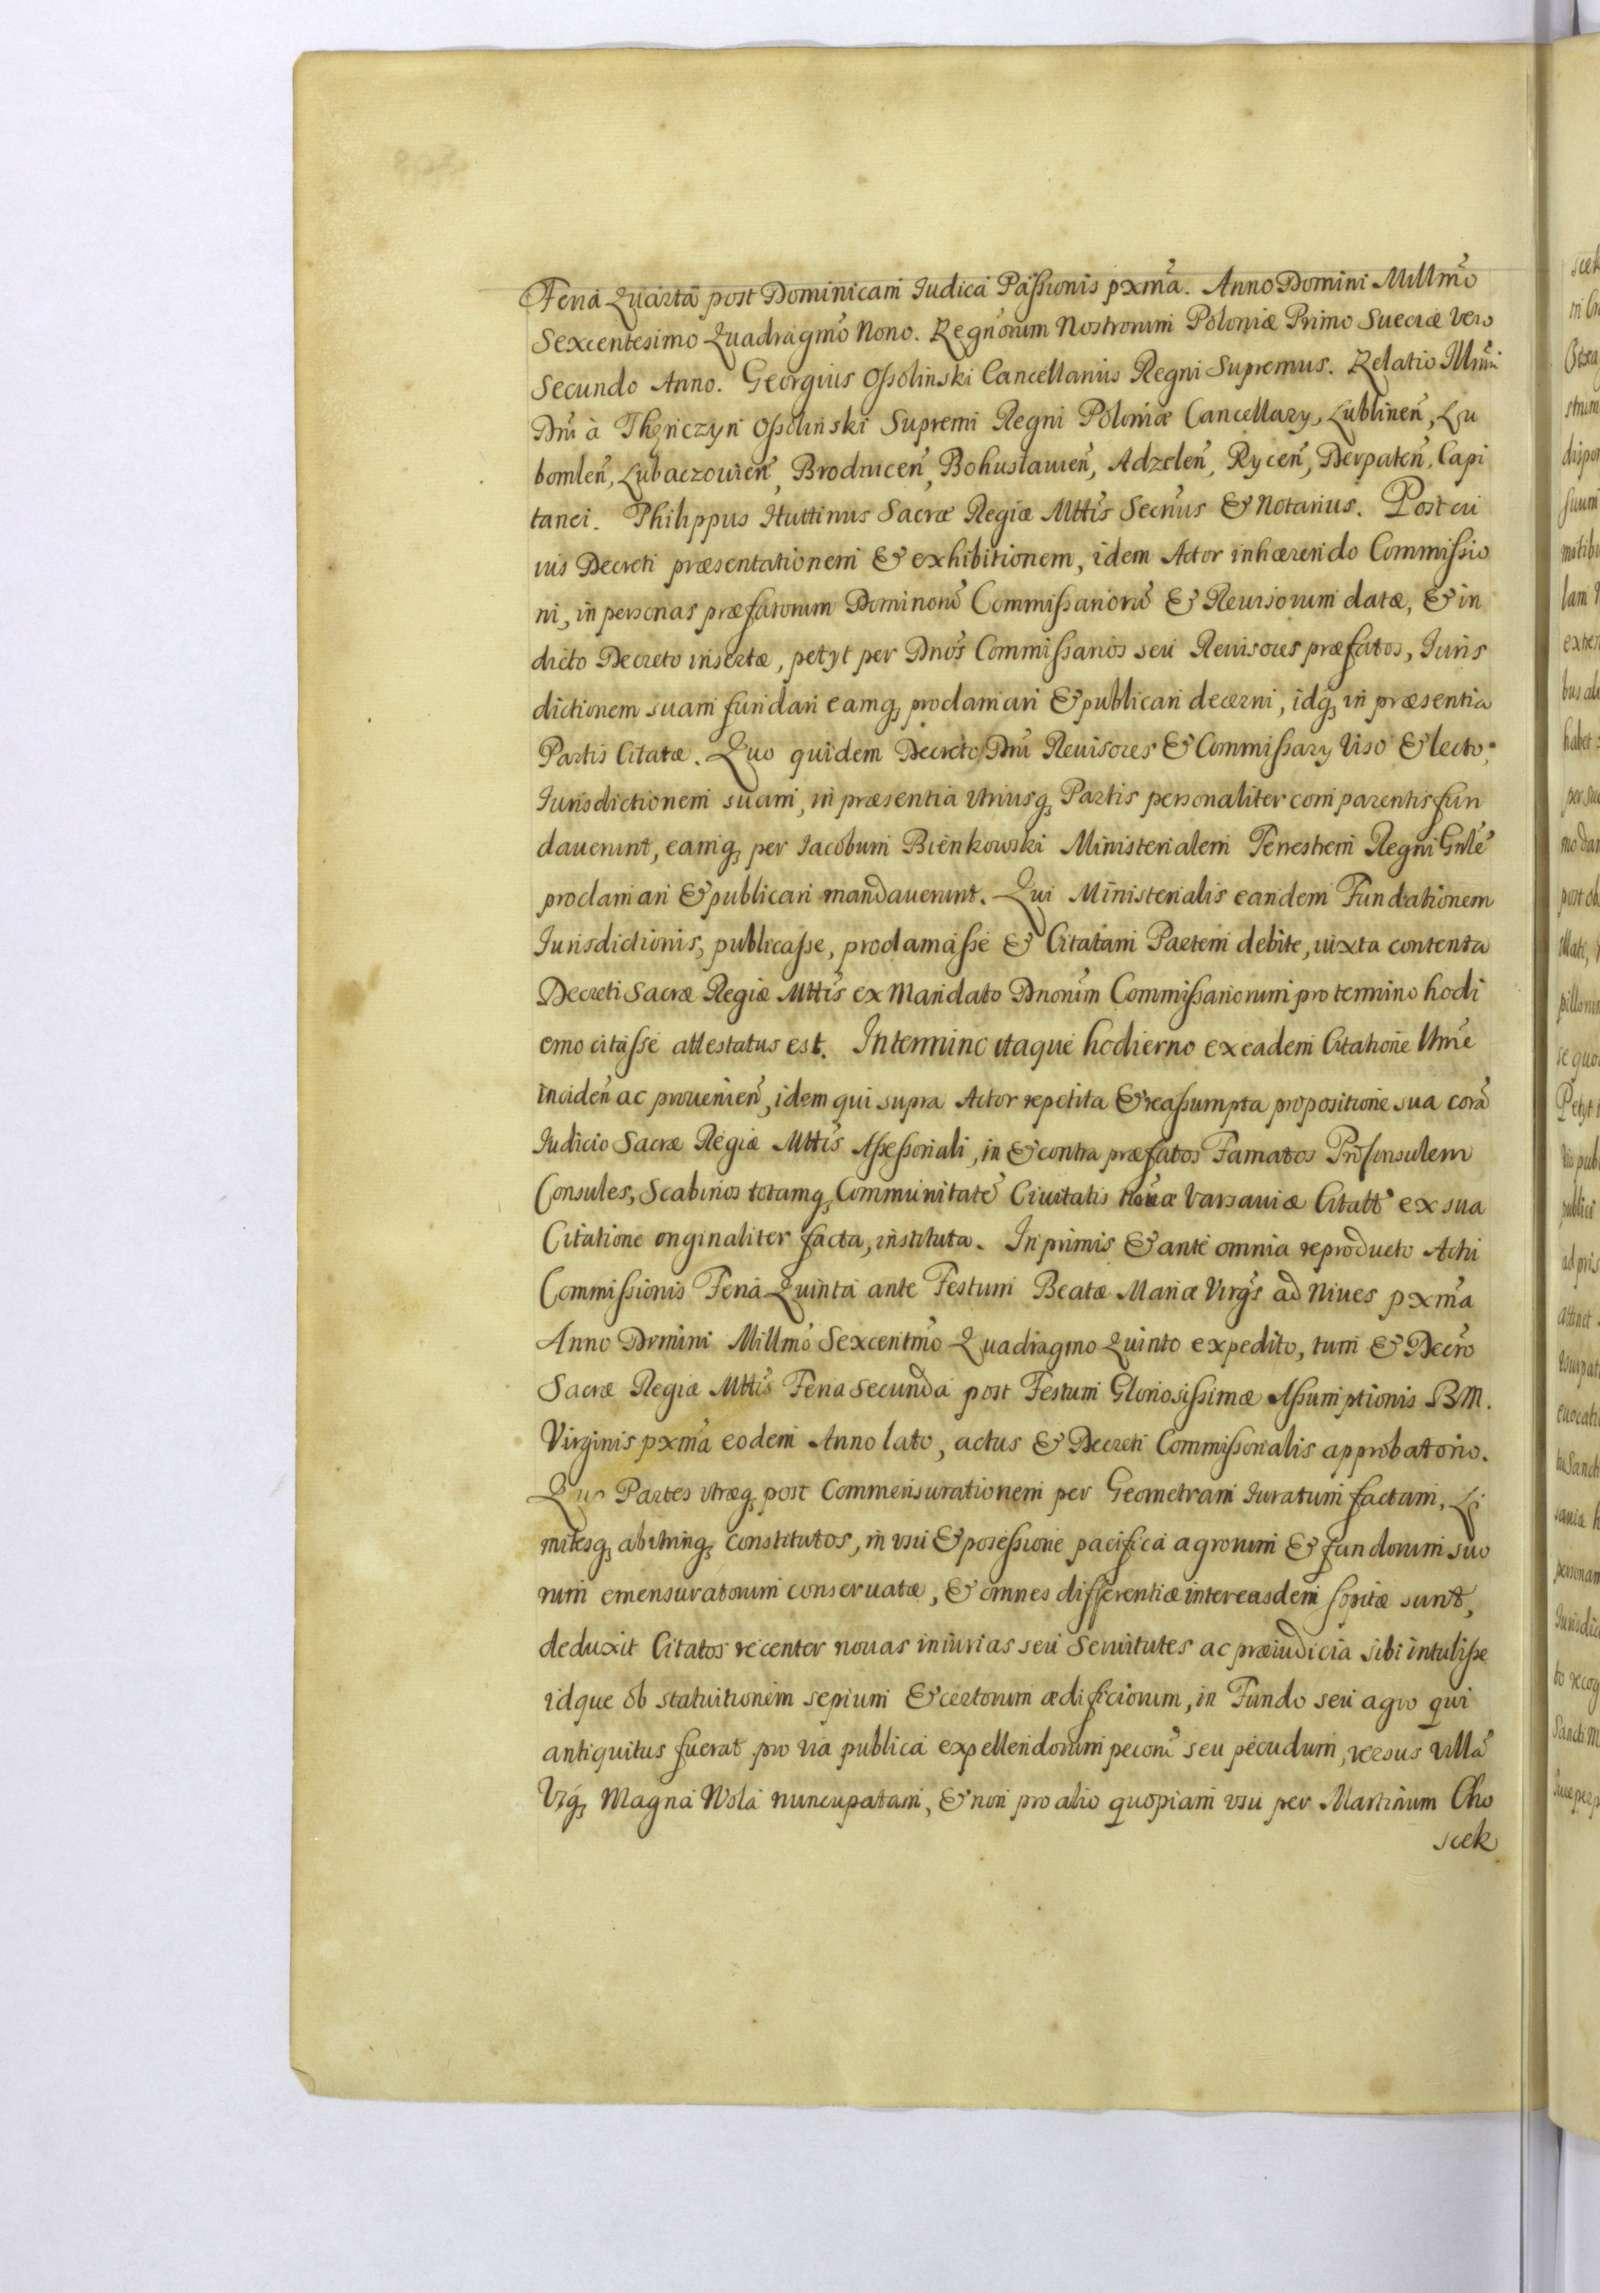 Feria Quarta post Dominicam Iudica Passionis pxmã. Anno Domini Millmõ
Sexcentesimo Quadragmõ Nono. Regnorum Nostrorum Poloniæ Primo Sueciæ vero
Secundo Anno. Georgius Ossolinski Cancellarius Regni Supremus. Relatio Illmi
Dni à Thęnczyn Ossolinski Supremi Regni Poloniæ Cancellary, Lublineñ, Lu
bomleñ, Lubaczouieñ, Brodniceñ, Bohuslauieñ, Adzeleñ, Ryceñ, Derpateñ, Capi
tanei. Philippus Huttinus Sacræ Regiæ Mttis Secrius & Notarius. Post cu
ius Decreti præsentationem & exhibitionem, idem Actor inhærendo Commissio
ni, in personas præfatorum Dominorũ Commissariorũ & Reuisorum datæ, & in
dicto Decreto insertæ, petyt per Dnos Commissarios seu Reuisores præfatos, Iuris
dictionem suam fundari eamq; proclamari & publicari decerni, idq; in præsentia
Partis Citatæ. Quo quidem Decreto Dni Reuisores & Commissary Viso & lecto,
Iurisdictionem suam, in præsentia vtriusq; Partis personaliter comparentis fun
dauerunt, eamq; per Iacobum Bienkowski Ministerialem Terrestrem Regni Gnlẽ
proclamari & publicari mandauerunt. Qui Ministerialis eandem Fundationem
Iurisdictionis, publicasse, proclamasse & Citatam Partem debite, iuxta contenta
Decreti Sacræ Regiæ Mttis ex Mandato Dnorum Commissariorum pro termino hodi
erno citasse attestatus est. In termino itaque hodierno ex eadem Citatione Vtmẽ
incideñ ac prouenieñ, idem qui supra Actor repetita & reassumpta propositione sua corã
Iudicio Sacræ Regiæ Mttis Assessoriali, in & contra præfatos Famatos Prõconsulem
Consules, Scabinos totamq; Communitatẽ Ciuitatis nouæ Varsauiæ Citatt ex sua
Citatione originaliter facta, instituta. In primis & ante omnia reproducto Actu
Commissionis Feria Quinta ante Festum Beatæ Mariæ Virgs ad Niues pxmã
Anno Domini Millmõ Sexcentmõ Quadragmo Quinto expedito, tum & Decrõ
Sacræ Regiæ Mttis Feria secunda post Festum Gloriosissimæ Assumptionis B M.
Virginis pxmã eodem Anno lato, actus & Decreti Commissorialis approbatorio.
Quo Partes vtræq; post Commensurationem per Geometram Iuratum factam, Li
mitesq; ab vtrinq; constitutos, in vsu & possessione pacifica agrorum & fundorum suo
rum emensuratorum conseruatæ, & omnes differentiæ inter easdem sopitæ sunt,
deduxit Citatos recenter nouas iniurias seu Seruitutes ac præiudicia sibi intulisse
idque ob statuitionem sepium & certorum ædificiorum, in Fundo seu agro qui
antiquitus fuerat pro via publica expellendorum pecorũ seu pecudum, versus villã
Vg; Magna Wola nuncupatam, & non pro alio quopiam vsu per Martinum Cho
scek